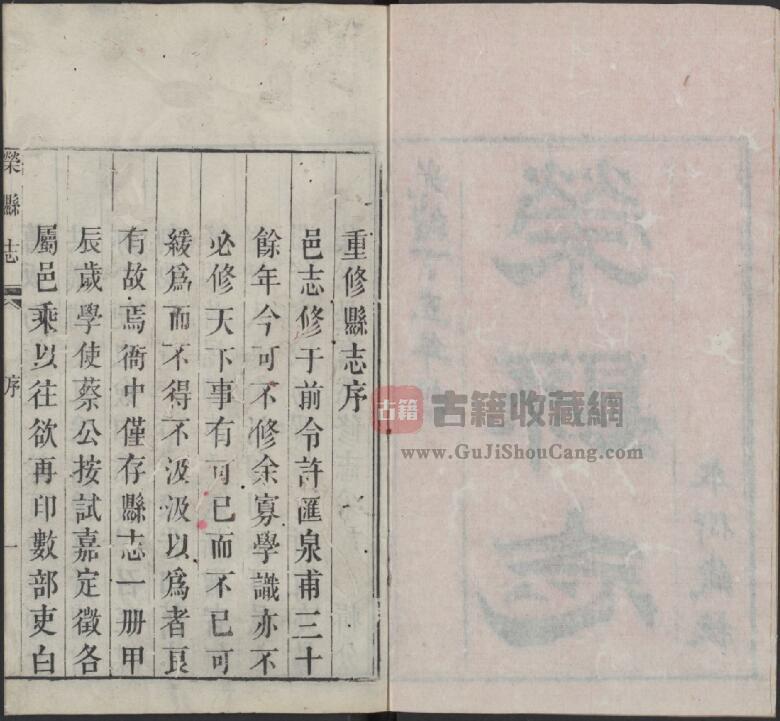 重修縣志序
邑志修于前令許匯泉甫三十
餘年今可不修余寡學識亦不
必修天下事有可已而不已可
緩爲而不得不汲汲以爲者良
有故焉衙中僅存縣志一册甲
辰歲學使蔡公按試嘉定徵各
屬邑乘以往欲再印數部吏白
榮縣志
序
一
古籍
古籍收藏網
www.GuJiShouCang.com
榮縣志